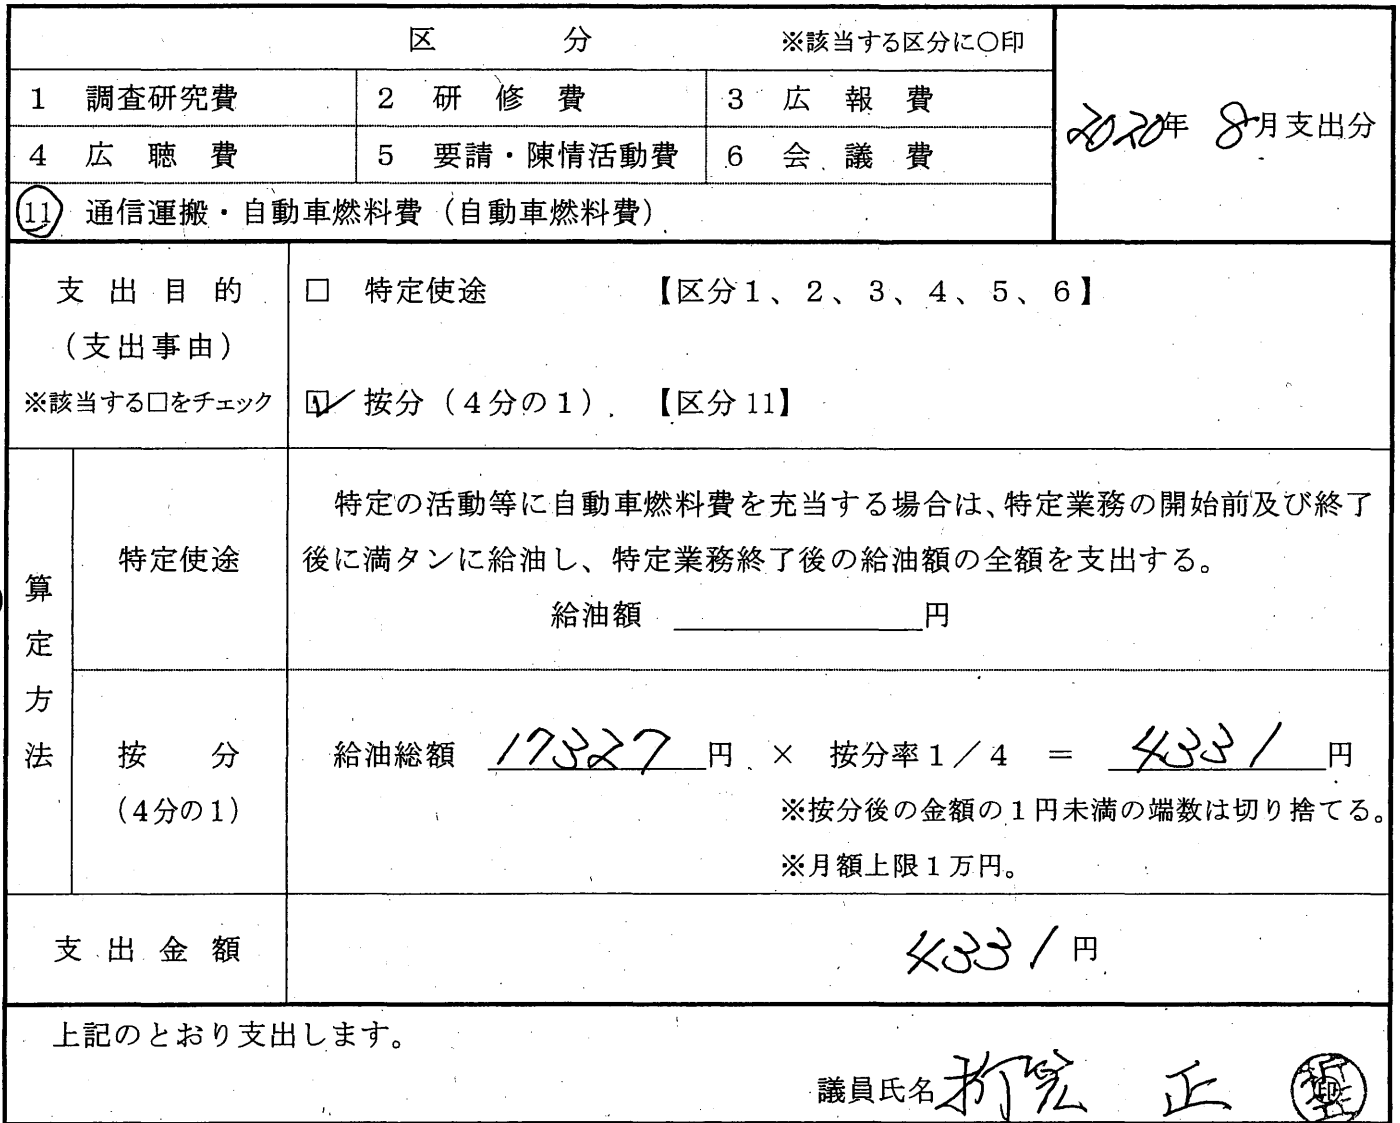 区 分 ※該当する区分に○印
1 調査研究費 2 研 修 費 3 広 報 費
2020年 8月支出分
4 広 聴 費 5 要請・陳情活動費 6 会 議 費
11 通信運搬・自動車燃料費（自動車燃料費）
支 出 目 的
（支出事由）
※該当する□をチェック
□ 特定使途 【区分1、2、3、4、5、6】
☑ 按分（4分の1） 【区分11】
算定方法
特定使途
特定の活動等に自動車燃料費を充当する場合は、特定業務の開始前及び終了
後に満タンに給油し、特定業務終了後の給油額の全額を支出する。
給油額 ＿＿＿＿円
按 分
（4分の1）
給油総額 17327円 × 按分率1／4 ＝ 4331円
※按分後の金額の1円未満の端数は切り捨てる。
※月額上限1万円。
支 出 金 額 4331円
上記のとおり支出します。
議員氏名 正 印